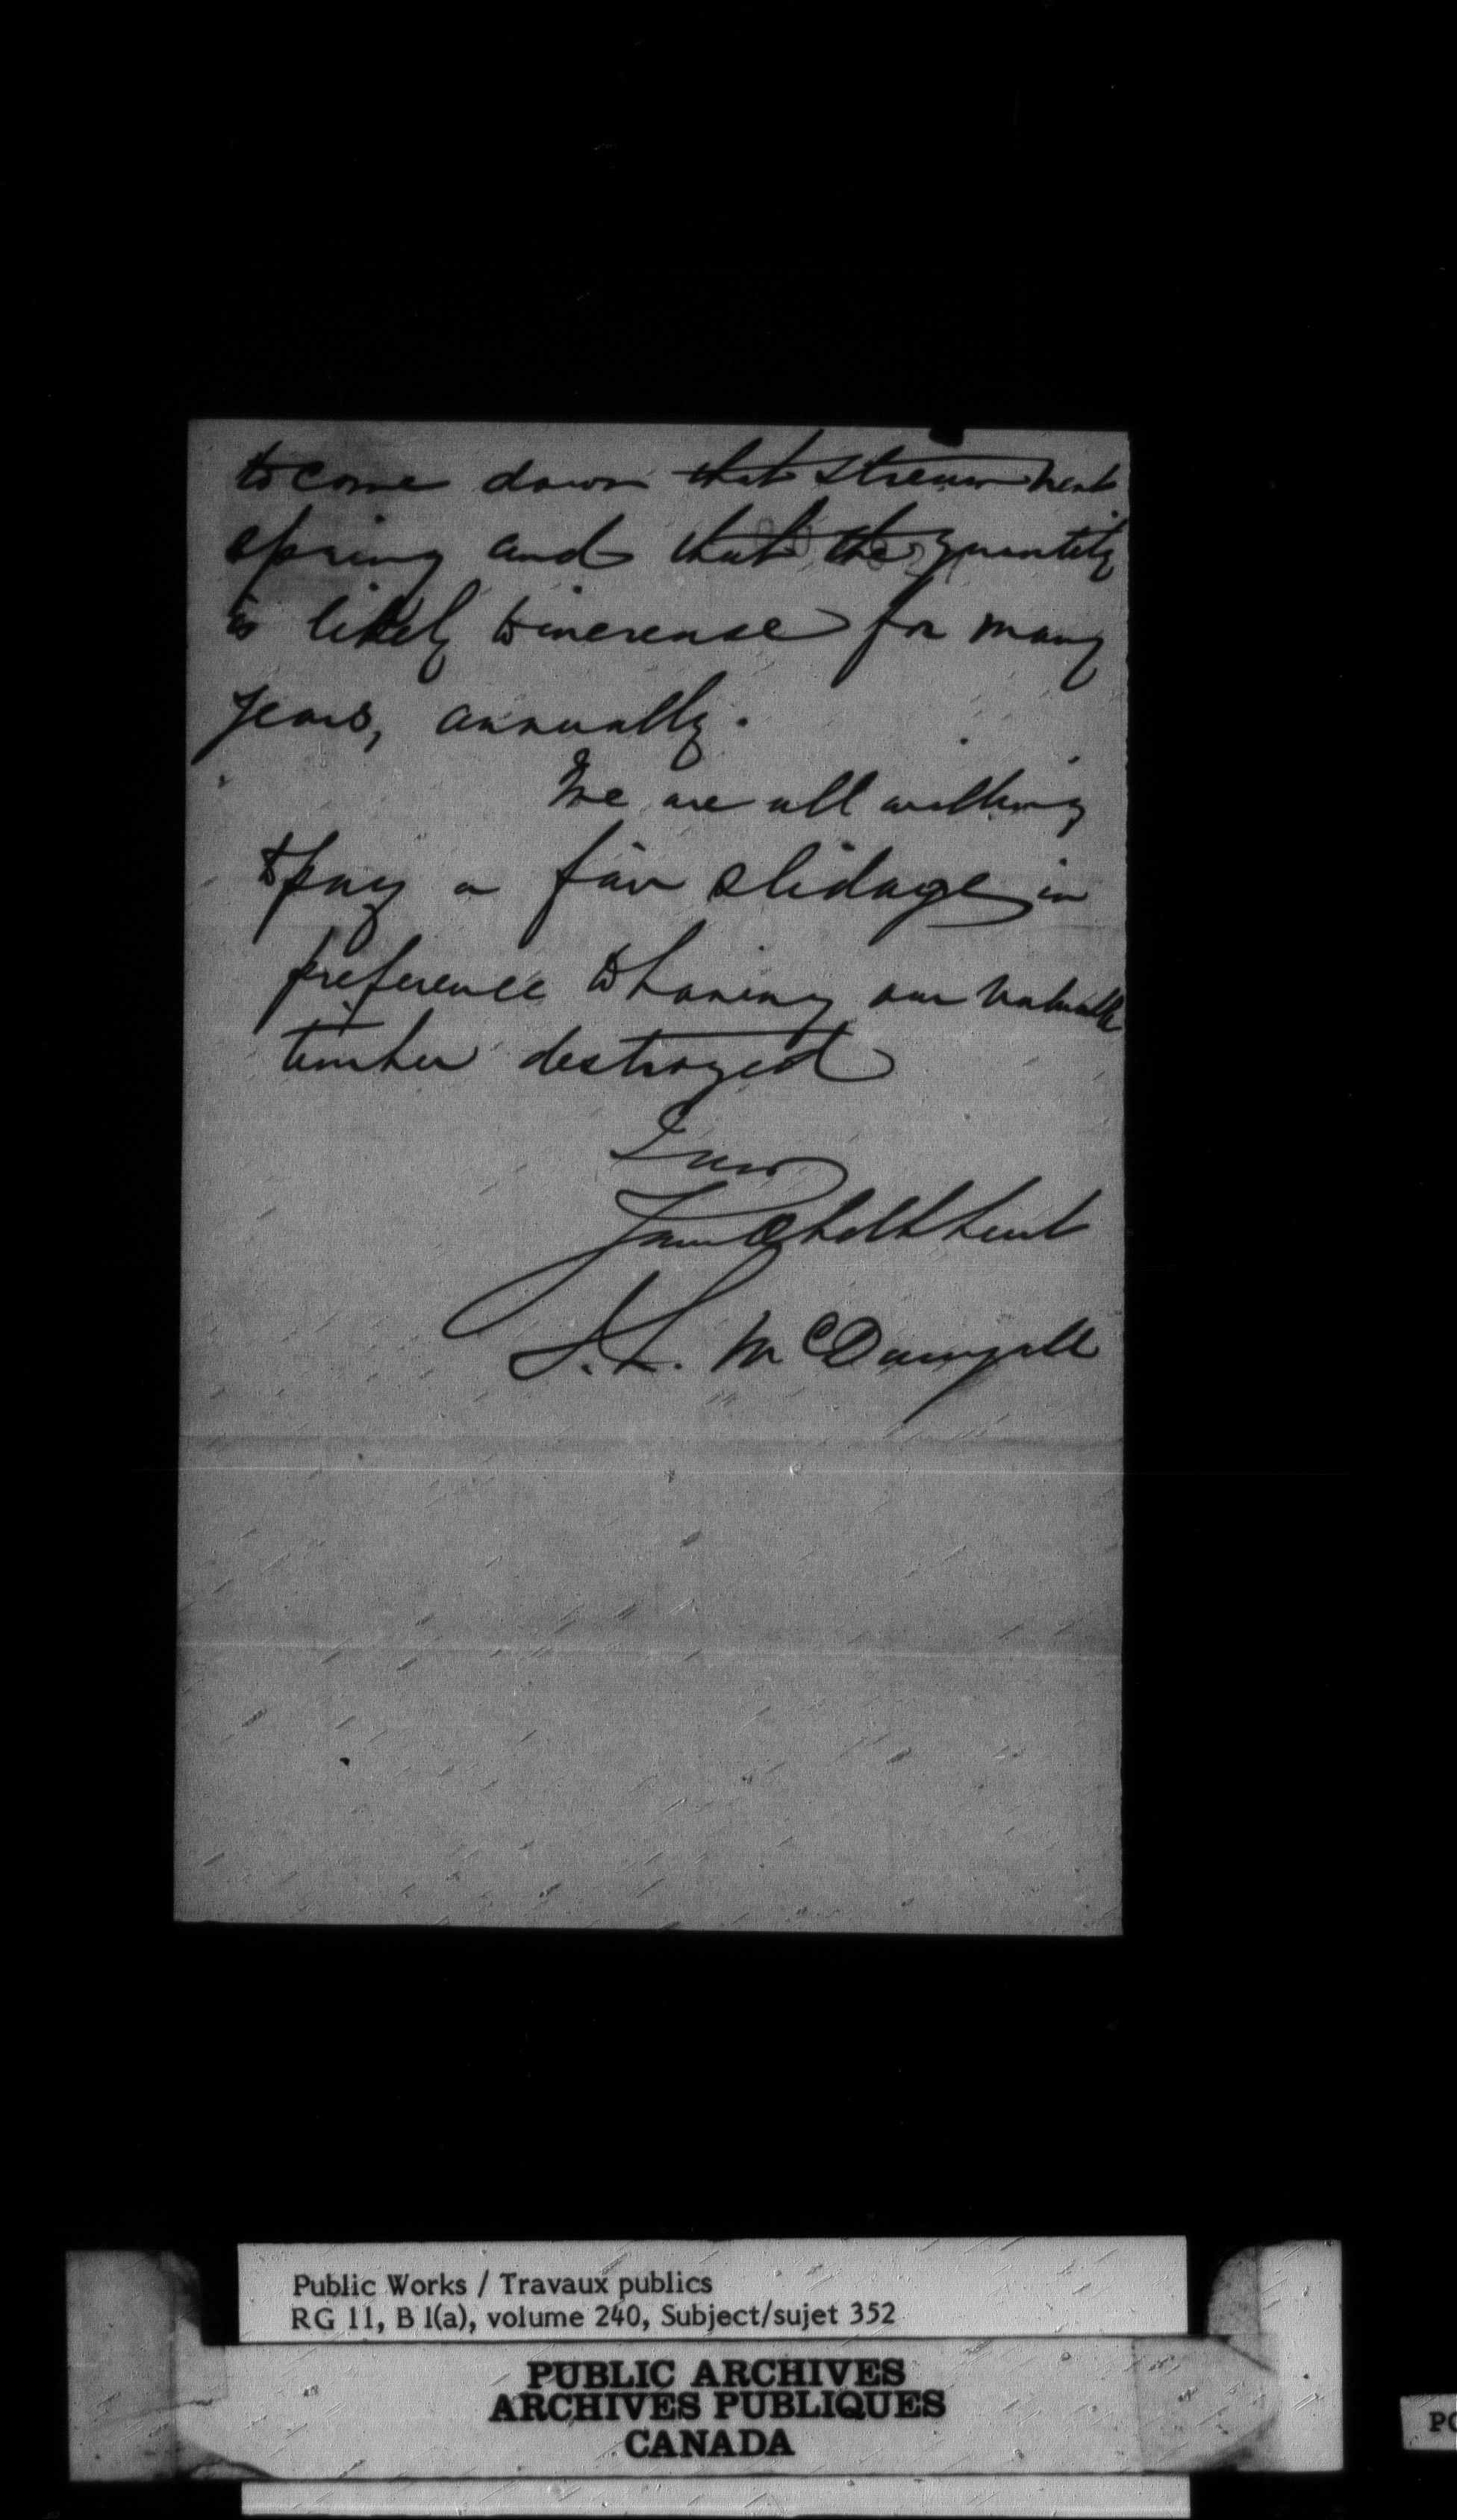 to come down that stream next
spring and that the quantity
is likely to increase for many
years, annually.
We are all willing
to pay a fair slidage in
preference to having our valuable
timber destroyed
I am
Your Obdt Servt
J. L. McDougall
Public Works / Travaux publics
RG 11, B 1(a), volume 240, Subject/sujet 352
PUBLIC ARCHIVES
ARCHIVES PUBLIQUES
CANADA